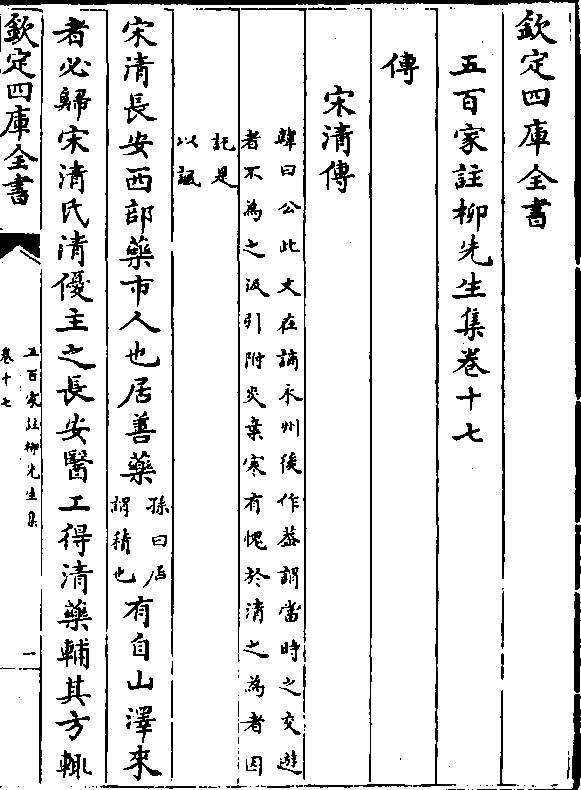 欽定四庫全書
五百家註柳先生集卷十七
傳
宋清傳
韓曰公此文在謫永州後作蓋謂當時之交遊
者不為之汲引附炎棄寒有愧於清之為者因
託是
以諷
宋清長安西部藥市人也居善藥孫曰居謂積也有自山澤來
者必歸宋清氏清優主之長安醫工得清藥輔其方輒
欽定四庫全書
五百家註柳先生集
卷十七
一